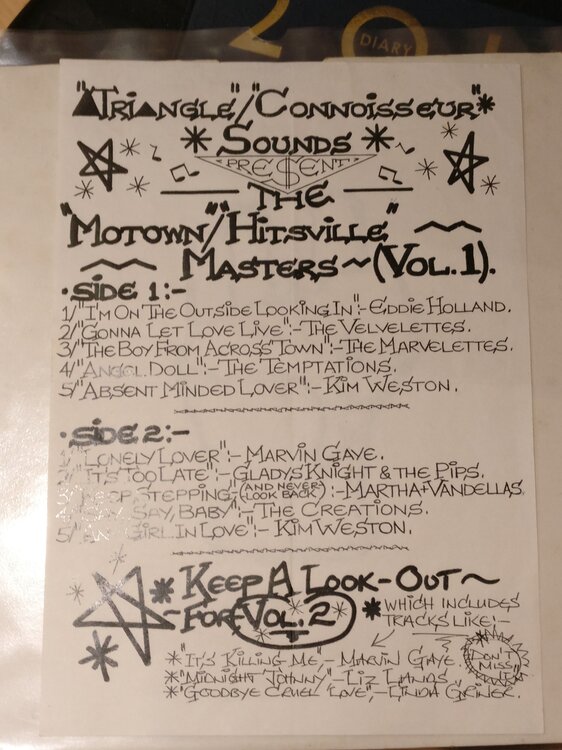 2 0 1
DIARY
"TRIANGLE"/"CONNOISSEUR"*
* SOUNDS *
"PRE$ENT"
THE
"MOTOWN"/"HITSVILLE"
MASTERS ~ (VOL. 1).
·SIDE 1:-
1/"I'M ON THE OUTSIDE LOOKING IN":-EDDIE HOLLAND.
2/"GONNA LET LOVE LIVE":-THE VELVELETTES.
3/"THE BOY FROM ACROSS TOWN":-THE MARVELETTES.
4/"ANGEL DOLL":-THE TEMPTATIONS.
5/"ABSENT MINDED LOVER":-KIM WESTON.
·SIDE 2:-
"LONELY LOVER":-MARVIN GAYE.
"IT'S TOO LATE":-GLADYS KNIGHT & THE PIPS.
STEPPING (AND NEVER LOOK BACK):-MARTHA+VANDELLAS.
SAY, BABY":-THE CREATIONS.
5/ GIRL IN LOVE":-KIM WESTON.
* KEEP A LOOK-OUT ~
~ FOR VOL. 2
* WHICH INCLUDES
TRACKS LIKE:-
*"IT'S KILLING ME"-MARVIN GAYE.
*"MIDNIGHT JOHNNY"-LIZ LANDS.
*"GOODBYE CRUEL LOVE",-LINDA GRINER.
DON'T
MISS
IT